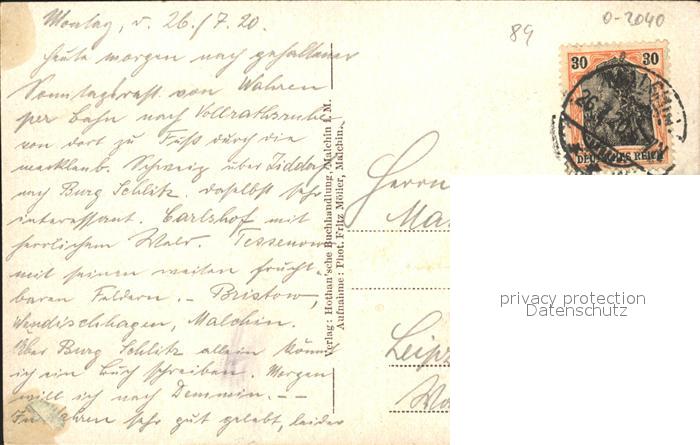 Montag, d. 26./7. 20.
89
0-2040
heute morgen nach gehaltener
Sonntagsrast von Wahren
per Bahn nach Vollrathsruhe
von dort zu Fuß durch die
mecklenb. Schweiz über Ziddorf
nach Burg Schlitz. daselbst sehr
interessant. Carlshof mit
herrlichem Wald. Tessenow
mit seinen weiten frucht-
baren Feldern. – Bristow,
Wendischhagen, Malchin.
Über Burg Schlitz allein könnt
ich ein Buch schreiben. Morgen
will ich nach Demmin. – –
In Wahren sehr gut gelebt, leider
Verlag: Hothan'sche Buchhandlung, Malchin i. M.
Aufnahme: Phot. Fritz Möller, Malchin.
30 30
DEUTSCHES REICH
MALCHIN
Herrn
Leipz
privacy protection
Datenschutz